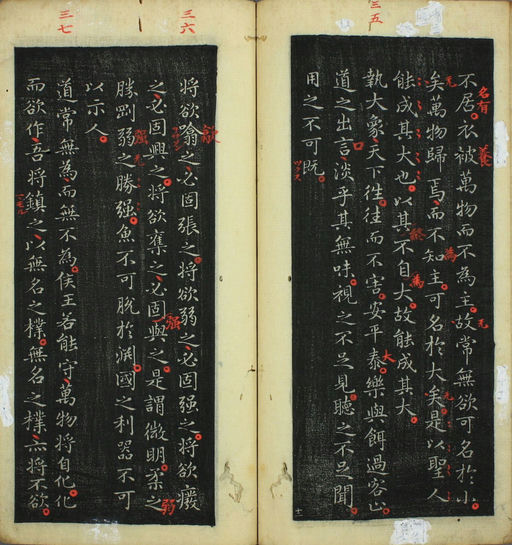 三五
不居衣被萬物而不為主故常無欲可名於小
名有
矣萬物歸焉而不知主可名於大矣是以聖人
能成其大也以其不自大故能成其大
執大象天下往往而不害安平泰樂與餌過客止
大
道之出言淡乎其無味視之不足見聽之不足聞
口
用之不可既
ツクス
三六
將欲噏之必固張之將欲弱之必固强之將欲癈
歙
之必固興之將欲奪之必固與之是謂微明柔之
勝剛弱之勝强魚不可脫於淵國之利器不可
强
弱
以示人
三七
道常無為而無不為侯王若能守萬物將自化化
而欲作吾將鎮之以無名之樸無名之樸亦將不欲